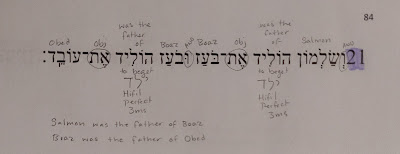 84
was the was the
father father
Obed obj of Boaz and Boaz obj of Salmon and
21 וְשַׂלְמוֹן הוֹלִיד אֶת־בֹּעַז וּבֹעַז הוֹלִיד אֶת־עוֹבֵד׃
to beget to beget
ילד ילד
Hifil Hifil
perfect Perfect
3ms 3ms
Salmon was the father of Boaz
Boaz was the father of Obed